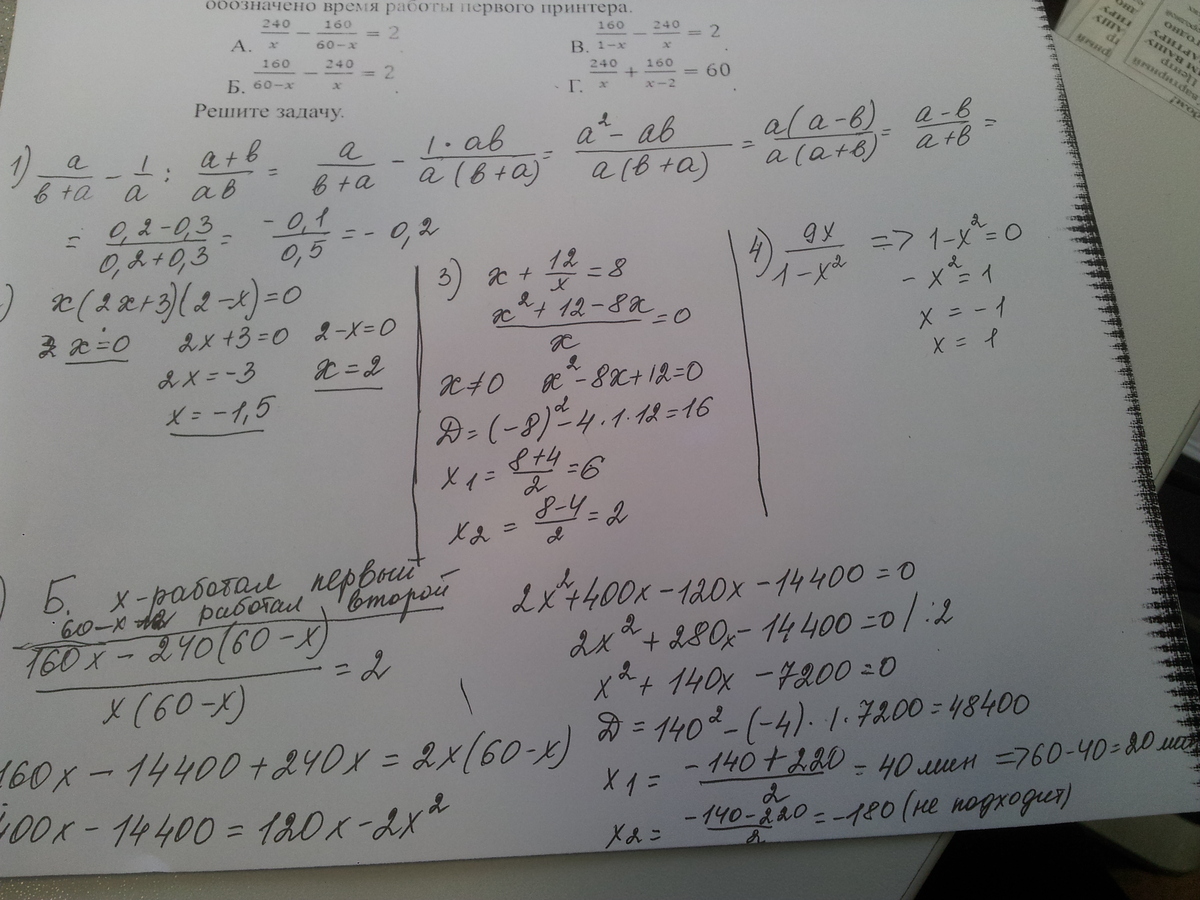 обозначено время работы первого принтера.
А. 240/x − 160/(60−x) = 2.
В. 160/(1−x) − 240/x = 2.
Б. 160/(60−x) − 240/x = 2.
Г. 240/x + 160/(x−2) = 60.
Решите задачу.
1) a/(в+a) − 1/a : (a+в)/(aв) = a/(в+a) − (1·aв)/(a(в+a)) = (a² − aв)/(a(в+a)) = (a(a−в))/(a(a+в)) = (a−в)/(a+в) =
= (0,2−0,3)/(0,2+0,3) = −0,1/0,5 = −0,2
) x(2x+3)(2−x)=0
x=0 2x+3=0 2−x=0
2x=−3 x=2
x=−1,5
3) x + 12/x = 8
(x²+12−8x)/x = 0
x≠0 x²−8x+12=0
Д=(−8)²−4·1·12=16
x1 = (8+4)/2 = 6
x2 = (8−4)/2 = 2
4) 9x/(1−x²) => 1−x²=0
−x²=1
x = −1
x = 1
) Б. x-работал первый
60−x работал второй
(160x − 240(60−x))/(x(60−x)) = 2
160x − 14400+240x = 2x(60−x)
400x − 14400 = 120x − 2x²
2x²+400x−120x−14400=0
2x²+280x−14400=0/:2
x²+140x −7200=0
Д=140²−(−4)·1·7200=48400
x1 = (−140+220)/2 = 40 мин =>60−40=20 мин
x2 = (−140−220)/2 = −180 (не подходит)